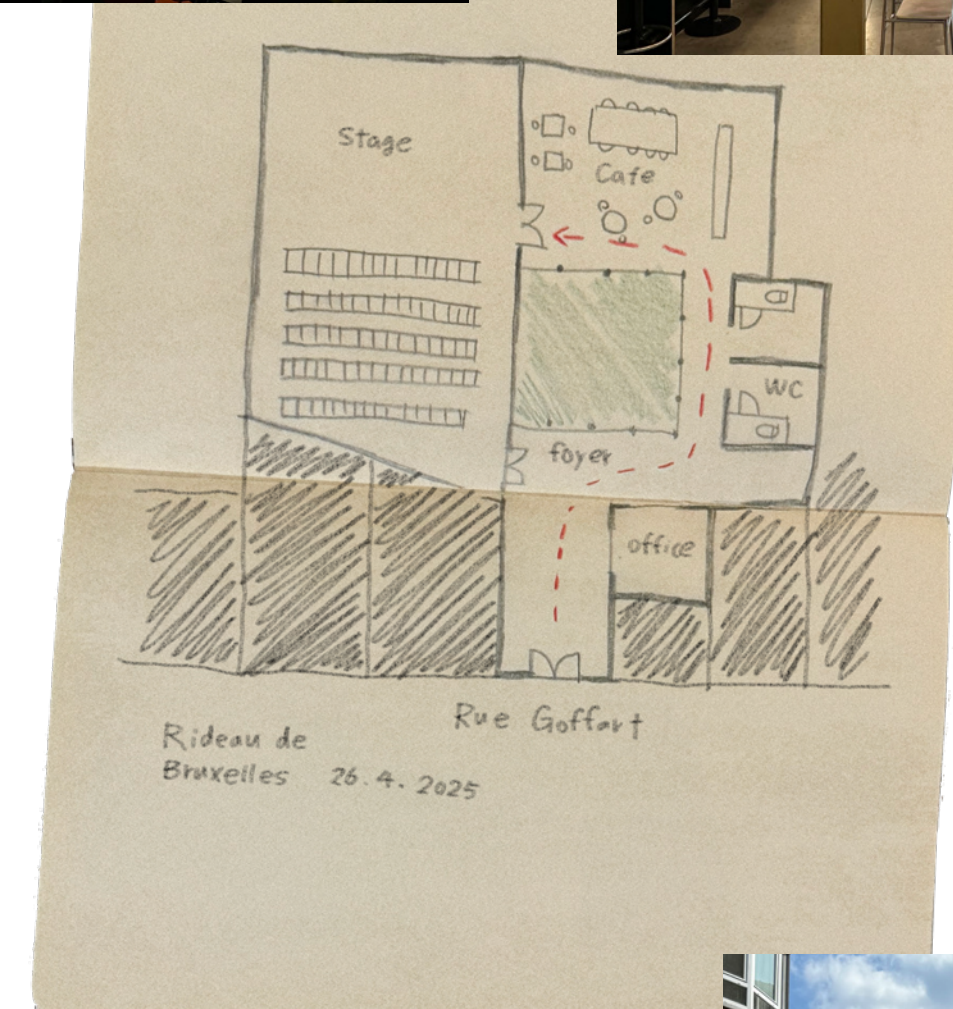 Stage
Cafe
WC
foyer
office
Rue Goffart
Rideau de
Bruxelles 26.4.2025